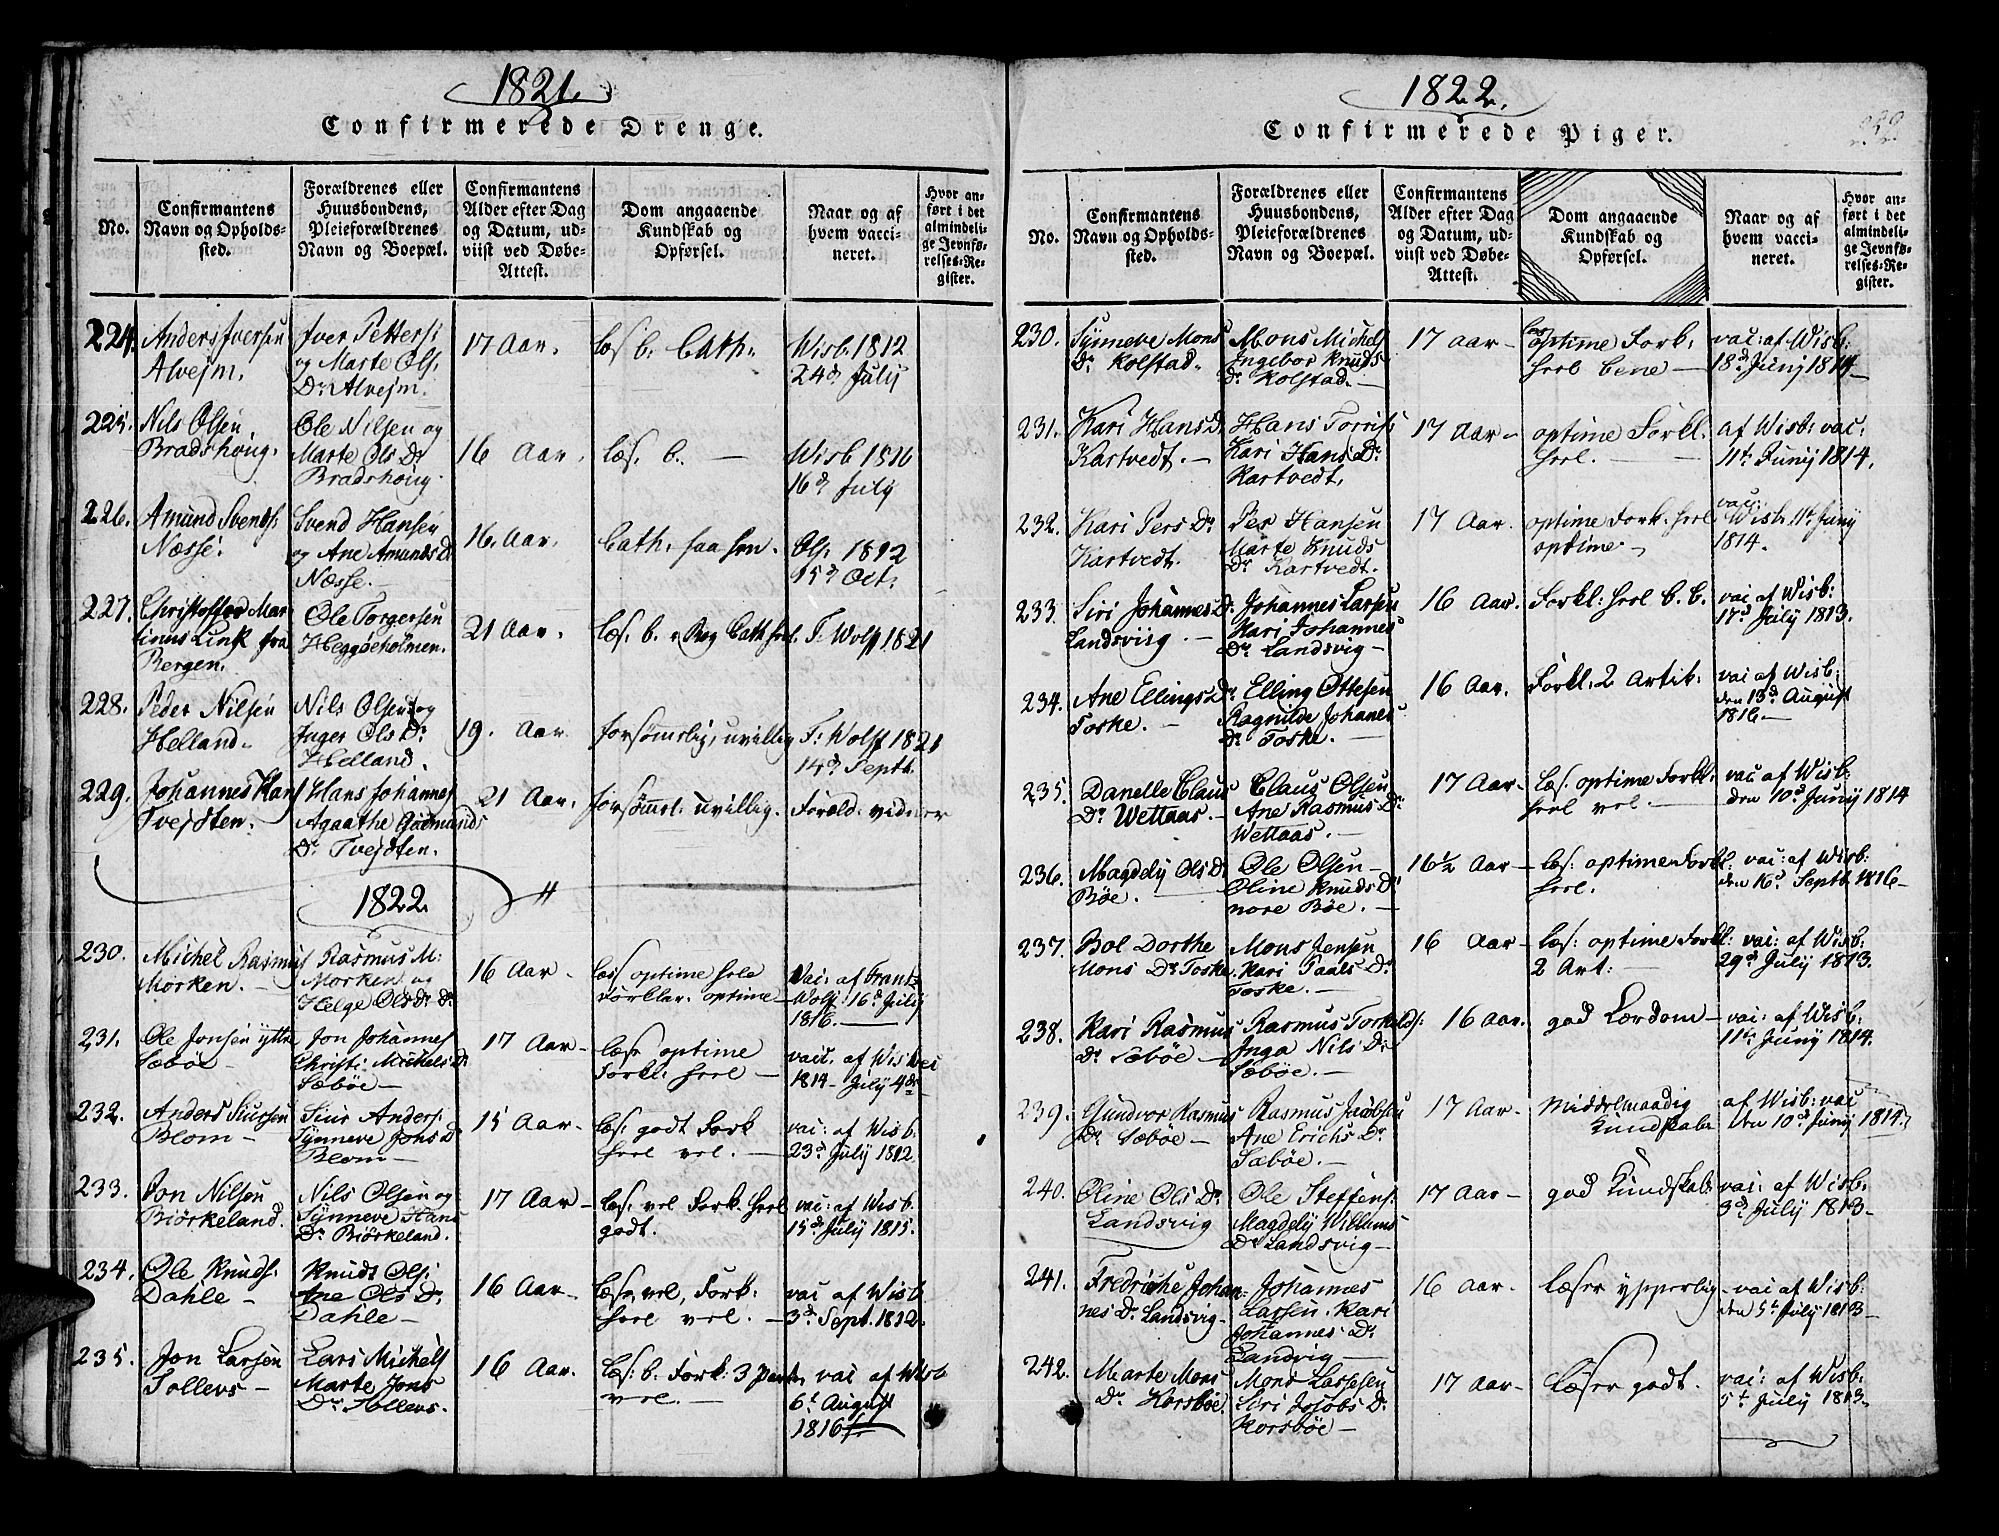 1821.
Confirmerede Drenge.
No.
Confirmantens
Navn og Opholds-
sted.
Forældrenes eller
Huusbondens,
Pleieforældrenes
Navn og Boepæl.
Confirmantens
Alder efter Dag
og Datum, ud-
viist ved Døbe-
Attest.
Dom angaaende
Kundskab og
Opførsel.
Naar og af
hvem vacci-
neret.
Hvor an-
ført i det
almindeli-
ge Jevnfø-
relses-Re-
gister.
224.
Anders Iversen
Alvejm.
Iver Petters:
og Marte Ols.
Dr Alvejm.
17 Aar.
læs b. Cath:
Wisb. 1812
24d July
225.
Nils Olsen
Bradshoug.
Ole Nilsen og
Marte Ols Dr
Bradshoug.
16 Aar.
læs. b. —
Wisb 1816
16d July
226.
Amund Svends:
Næsse.
Svend Hansen
og Ane Amunds D.
Næsse. —
16. Aar.
Cath:
Ols. 1812
15d Oct.
227.
Christoffer Mar
tinus Link fra
Bergen.
Ole Torgersen
Heggøeholmen.
21 Aar.
læs. b.
F: Wolff 1821
228.
Peder Nilsen
Helland.
Nils Olsen og
Inger Ols Dr
Helland.
19. Aar
forsømelig, uvillig
F: Wolff 1821
14d Septb.
229.
Johannes Hans
Tvejdten.
Hans Johannes
Agaathe Gudmunds
Dr Tvejdten.
21 Aar.
forsømt. uvillig.
Foræld: vidner
1822
230.
Michel Rasmus
Morken. —
Rasmus M:
Morken og
Helge Ols Dr.
16 Aar —
læs optime hele
Forklar. optime —
Vac: af Frants
Wolf: 16d July
1816. —
231.
Ole Jonsen ytte
Sæbøe —
Jon Johannes
Christi Michels D
Sæbøe —
17 Aar —
læser optime
Forkl: heel —
vacc. af Wisbe
1814 — July 4de
232.
Anders Siursen
Blom —
Siur Anders:
Synneve Johs D.
Blom —
15 Aar —
læs: godt Fork
heel vel. —
vac: af Wisb.
23d July 1812.
233.
Jon Nilsen
Biørkeland.
Nils Olsen og
Synneve Hans
Dr Biørkeland.
17 Aar —
læs: vel Fork. heel
godt.
vac: af Wisb.
15d July 1815.
234.
Ole Knuds:
Dahle —
Knudt Ols:
Ane Ols Dr
Dahle —
16 Aar —
læser vel, Fork:
heel vel. —
vac af Wisb.
3d Sept. 1812.
235.
Jon Larsen
Sollevs —
Lars Michels
Marte Jons
Dr Sollevs.
16 Aar.
læs: b. Fork: 3 Parter
vel. —
vac af Wisb
6t August
1816
1822.
Confirmerede Piger.
No.
Confirmantens
Navn og Opholds-
sted.
Forældrenes eller
Huusbondens,
Pleieforældrenes
Navn og Boepæl.
Confirmantens
Alder efter Dag
og Datum, ud-
viist ved Døbe-
Attest.
Dom angaaende
Kundskab og
Opførsel.
Naar og af
hvem vacci-
neret.
Hvor an-
ført i det
almindeli-
ge Jevnfø-
relses-Re-
gister.
230.
Synneve Mons
Dr Kolstad.
Mons Michels
Ingebor Knuds
Dr Kolstad. —
17 aar —
læs optime Fork.
heel bene —
vac: af Wisb:
18d Juny 1814 —
231.
Kari Hans D.
Kartvedt. —
Hans Torris:
Kari Hans Dr
Kartvedt.
17 Aar —
optime Forkl.
heel. —
af Wisb: vac:
11te Juny 1814.
232.
Kari Pers Dr
Kartvedt.
Per Hansen
Marte Knuds
Dr Kartvedt.
17 Aar.
optime Fork. heel
optime —
vac:
Wisb. 11te Juny
1814.
233.
Siri Johannes D.
Landsviig. —
Johannes Larsen
Kari Johannes
Dr Landsvig —
16 Aar.
Forkl: heel b. b.
vac af Wisb:
17d July 1813.
234.
Ane Ellings Dr
Toske. —
Elling Ottesen
Ragnilde Johanes
Dr Toske. —
16 Aar.
Forkl: 2 Artik.
vac af Wisb:
den 13d August
1816 —
235.
Danelle Claus
Dr Wettaas. —
Claus Olsen
Ane Rasmus Dr
Wettaas. —
17 Aar —
læs. optime Forkl.
heel vel —
vac af Wisb:
den 10d Juny 1814
236.
Magdely Ols Dr
Bøe. —
Ole Olsen —
Oline Knuds Dr
nore Bøe. —
16½ Aar —
læs: optime Forkl:
heel.
vac: af Wisb:
den 16d Septb. 1816 —
237.
Bol Dorthe
Mons Dr Toske.
Mons Jensen
Kari Paals Dr
Toske. —
16 Aar —
læs: optime Forkl:
2 Art: —
vac: af Wisb:
29d July 1813.
238.
Kari Rasmus
Dr Sæbøe —
Rasmus Torkelds:
Inga Nils Dr
Sæbøe. —
16 aar.
god Lærdom —
vac: af Wisb:
11te Juny 1814.
239.
Gundvor Rasmus
Dr Sæbøe —
Rasmus Jacobsen
Ane Erichs Dr
Sæbøe. —
17 Aar —
Middelmaadig
Kundskabe
af Wisb: vac
den 10d Juny 1814.
240.
Oline Ols Dr
Landsvig
Ole Steffens:
Magdely Willums
Dr Landsvig —
17 Aar —
god Kundskab
vac: af Wisb:
3d July 1813 —
241.
Fredriche Johan
nes Dr Landsvig —
Johannes
Larsen. Kari
Johannes Dr
Landvig —
16 Aar —
læser ypperlig
vac af Wisb:
den 5te July 1813 —
242.
Marte Mons
Dr Korsbøe
Mons Lassesen
Siri Jacobs Dr
Korsbøe —
17 Aar —
Læser godt.
vac: af Wisb:
5t July 1813 —